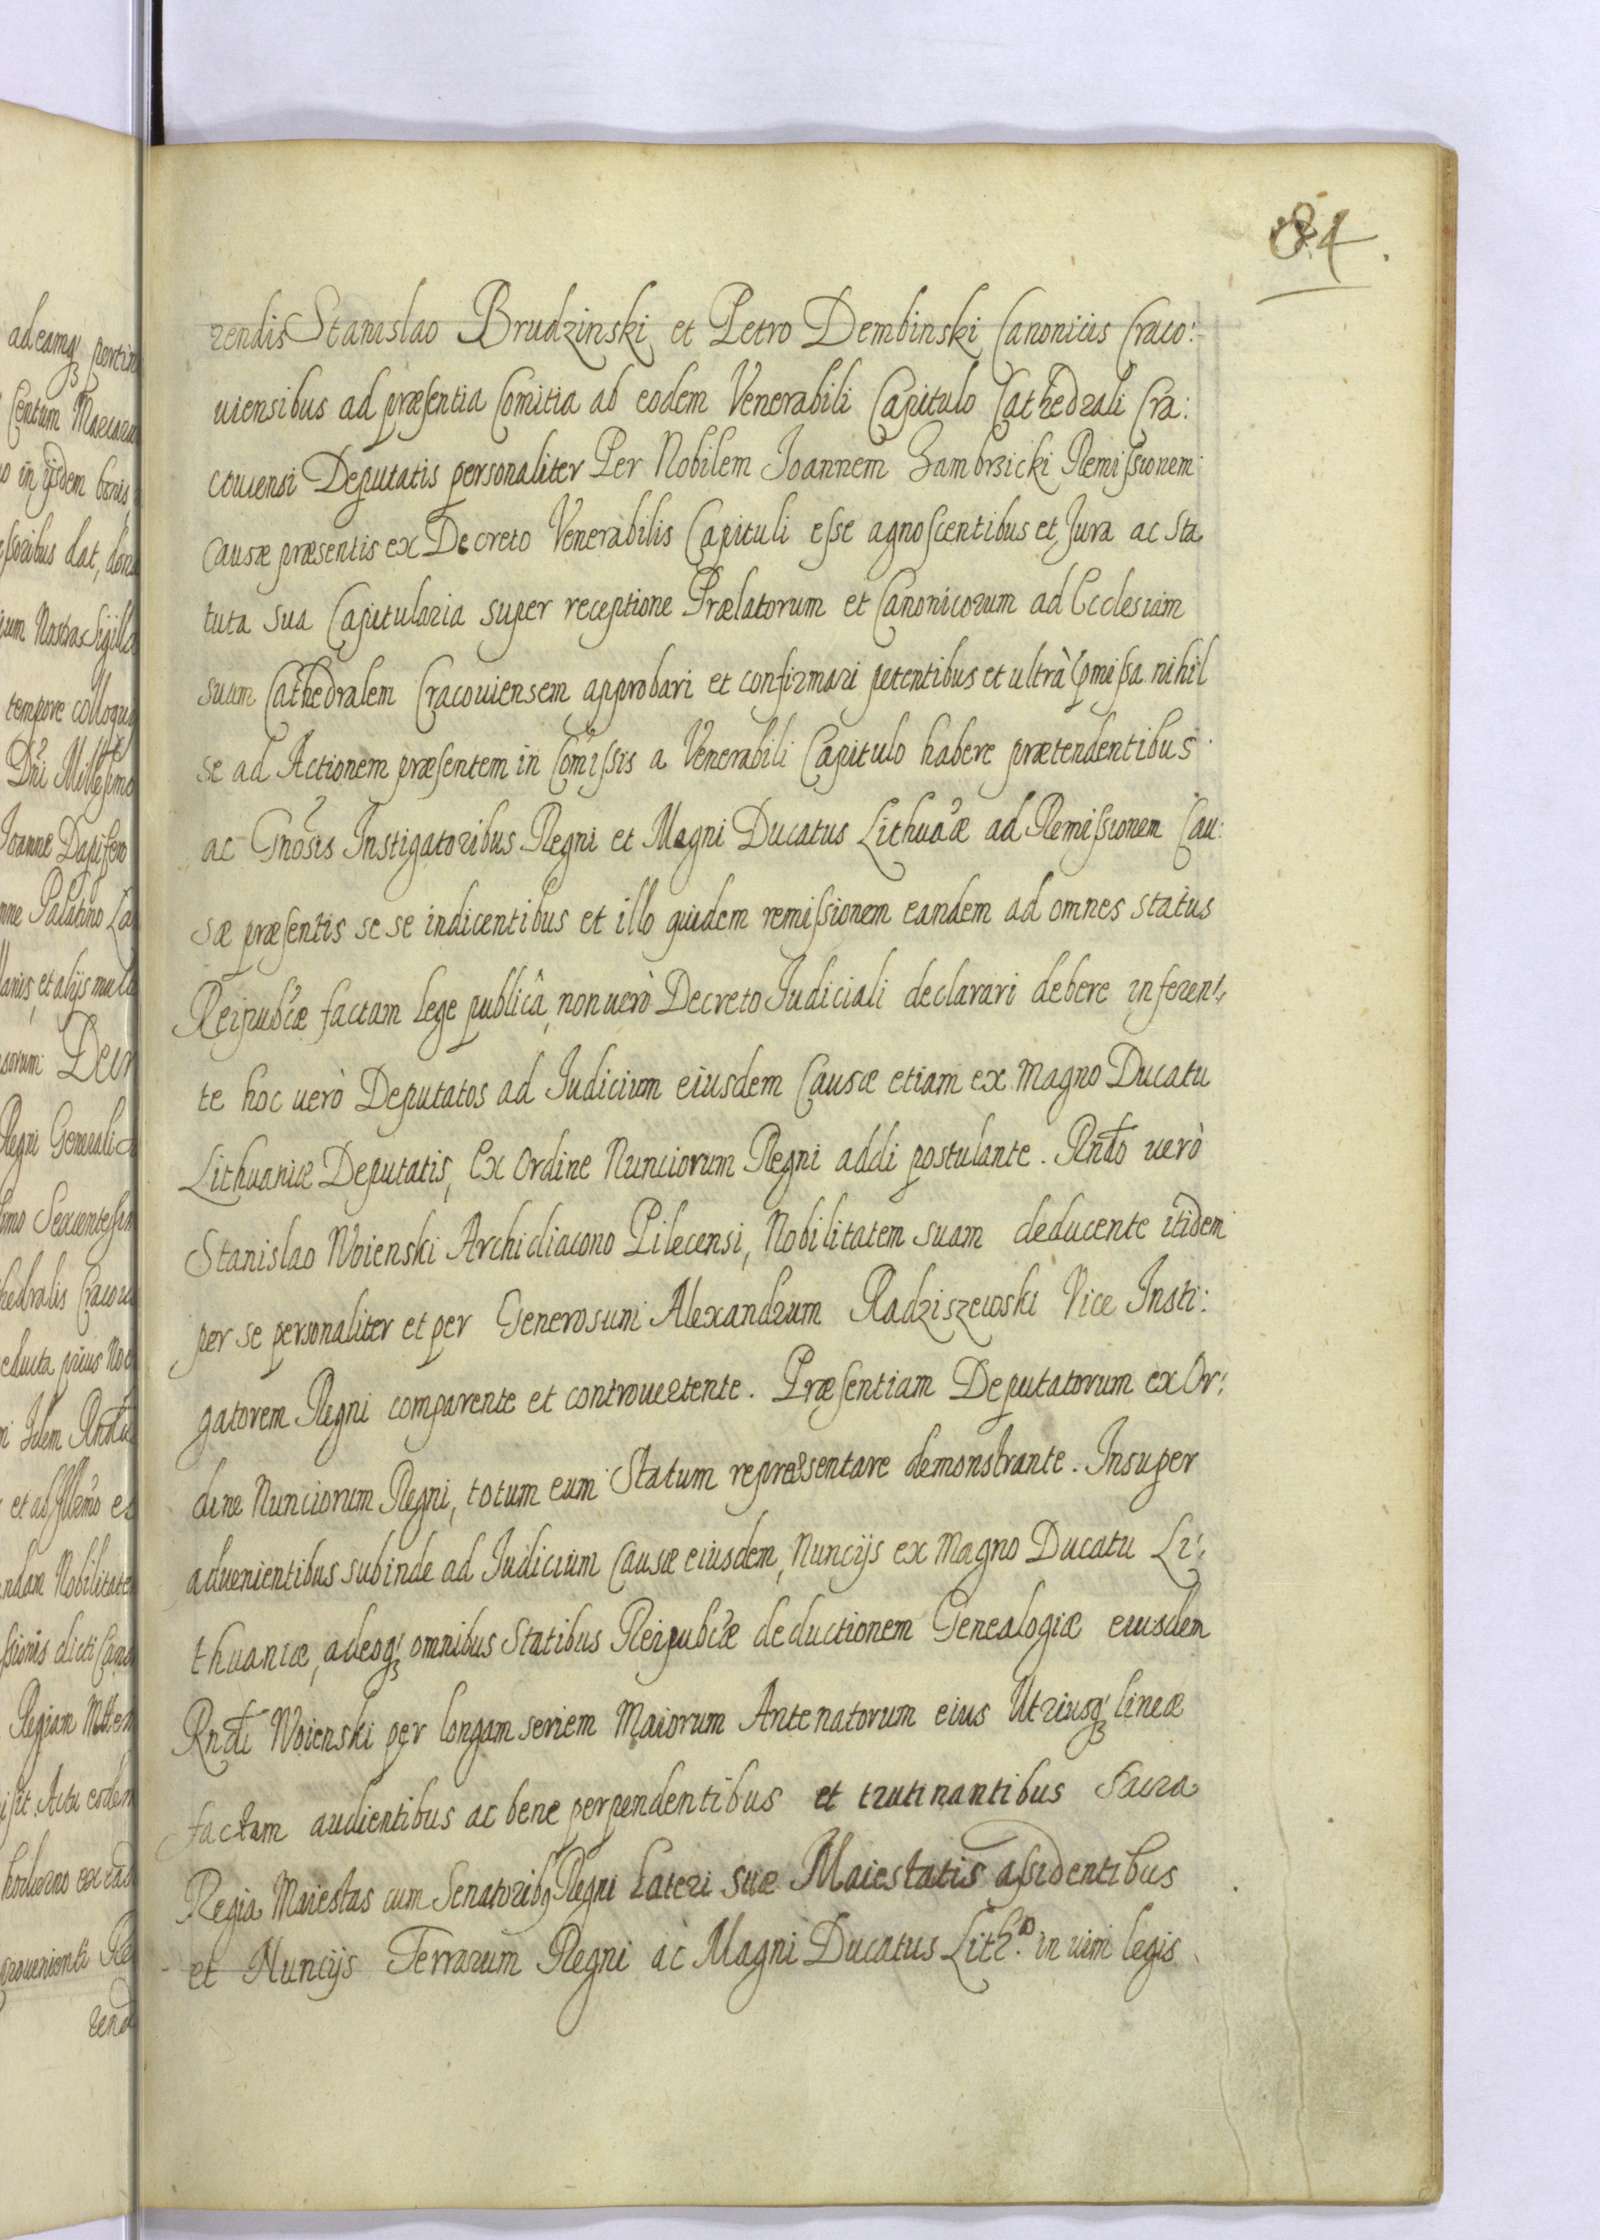 84.
rendis Stanislao Brudzinski et Petro Dembinski Canonicis Craco:
uiensibus ad præsentia Comitia ab eodem Venerabili Capitulo Cathedrali Cra:
couiensi Deputatis personaliter Per Nobilem Joannem Zambrzicki Remissionem
Causæ præsentis ex Decreto Venerabilis Capituli esse agnoscentibus et Jura ac Sta
tuta sua Capitularia super receptione Prælatorum et Canonicorum ad Ecclesiam
suam Cathedralem Cracouiensem approbari et confirmari petentibus et ultrà p̃missa nihil
se ad Actionem præsentem in Comissis a Venerabili Capitulo habere prætendentibus
ac Gñosis Instigatoribus Regni et Magni Ducatus Lithuãæ ad Remissionem Cau:
sæ præsentis se se indicentibus et illo quidem remissionem eandem ad omnes status
Reipubćæ factam Lege publicâ, non uerò Decreto Judiciali declarari debere inferen:
te hoc uerò Deputatos ad Judicium eiusdem Causæ etiam ex Magno Ducatu
Lithuaniæ Deputatis, Ex Ordine Nunciorum Regni addi postulante. Rndo uerò
Stanislao Woienski Archidiacono Pilecensi, Nobilitatem suam deducente itidem
per se personaliter et per Generosum Alexandrum Radziszewski Vice Insti:
gatorem Regni comparente et controuertente. Præsentiam Deputatorum ex Or:
dine Nunciorum Regni, totum eum Statum repræsentare demonstrante. Insuper
aduenientibus subinde ad Judicium Causæ eiusdem, Nuncijs ex Magno Ducatu Li:
thuaniæ, adeoq3 omnibus Statibus Reipubćæ deductionem Genealogiæ eiusdem
Rndi Woienski per longam seriem Maiorum Antenatorum eius Utriusq3 lineæ
factam audientibus ac bene perpendentibus et trutinantibus Sacra
Regia Maiestas cum Senatorib9 Regni Lateri Suæ Maiestatis assidentibus
et Nuncijs Terrarum Regni ac Magni Ducatus Lith. in uim legis